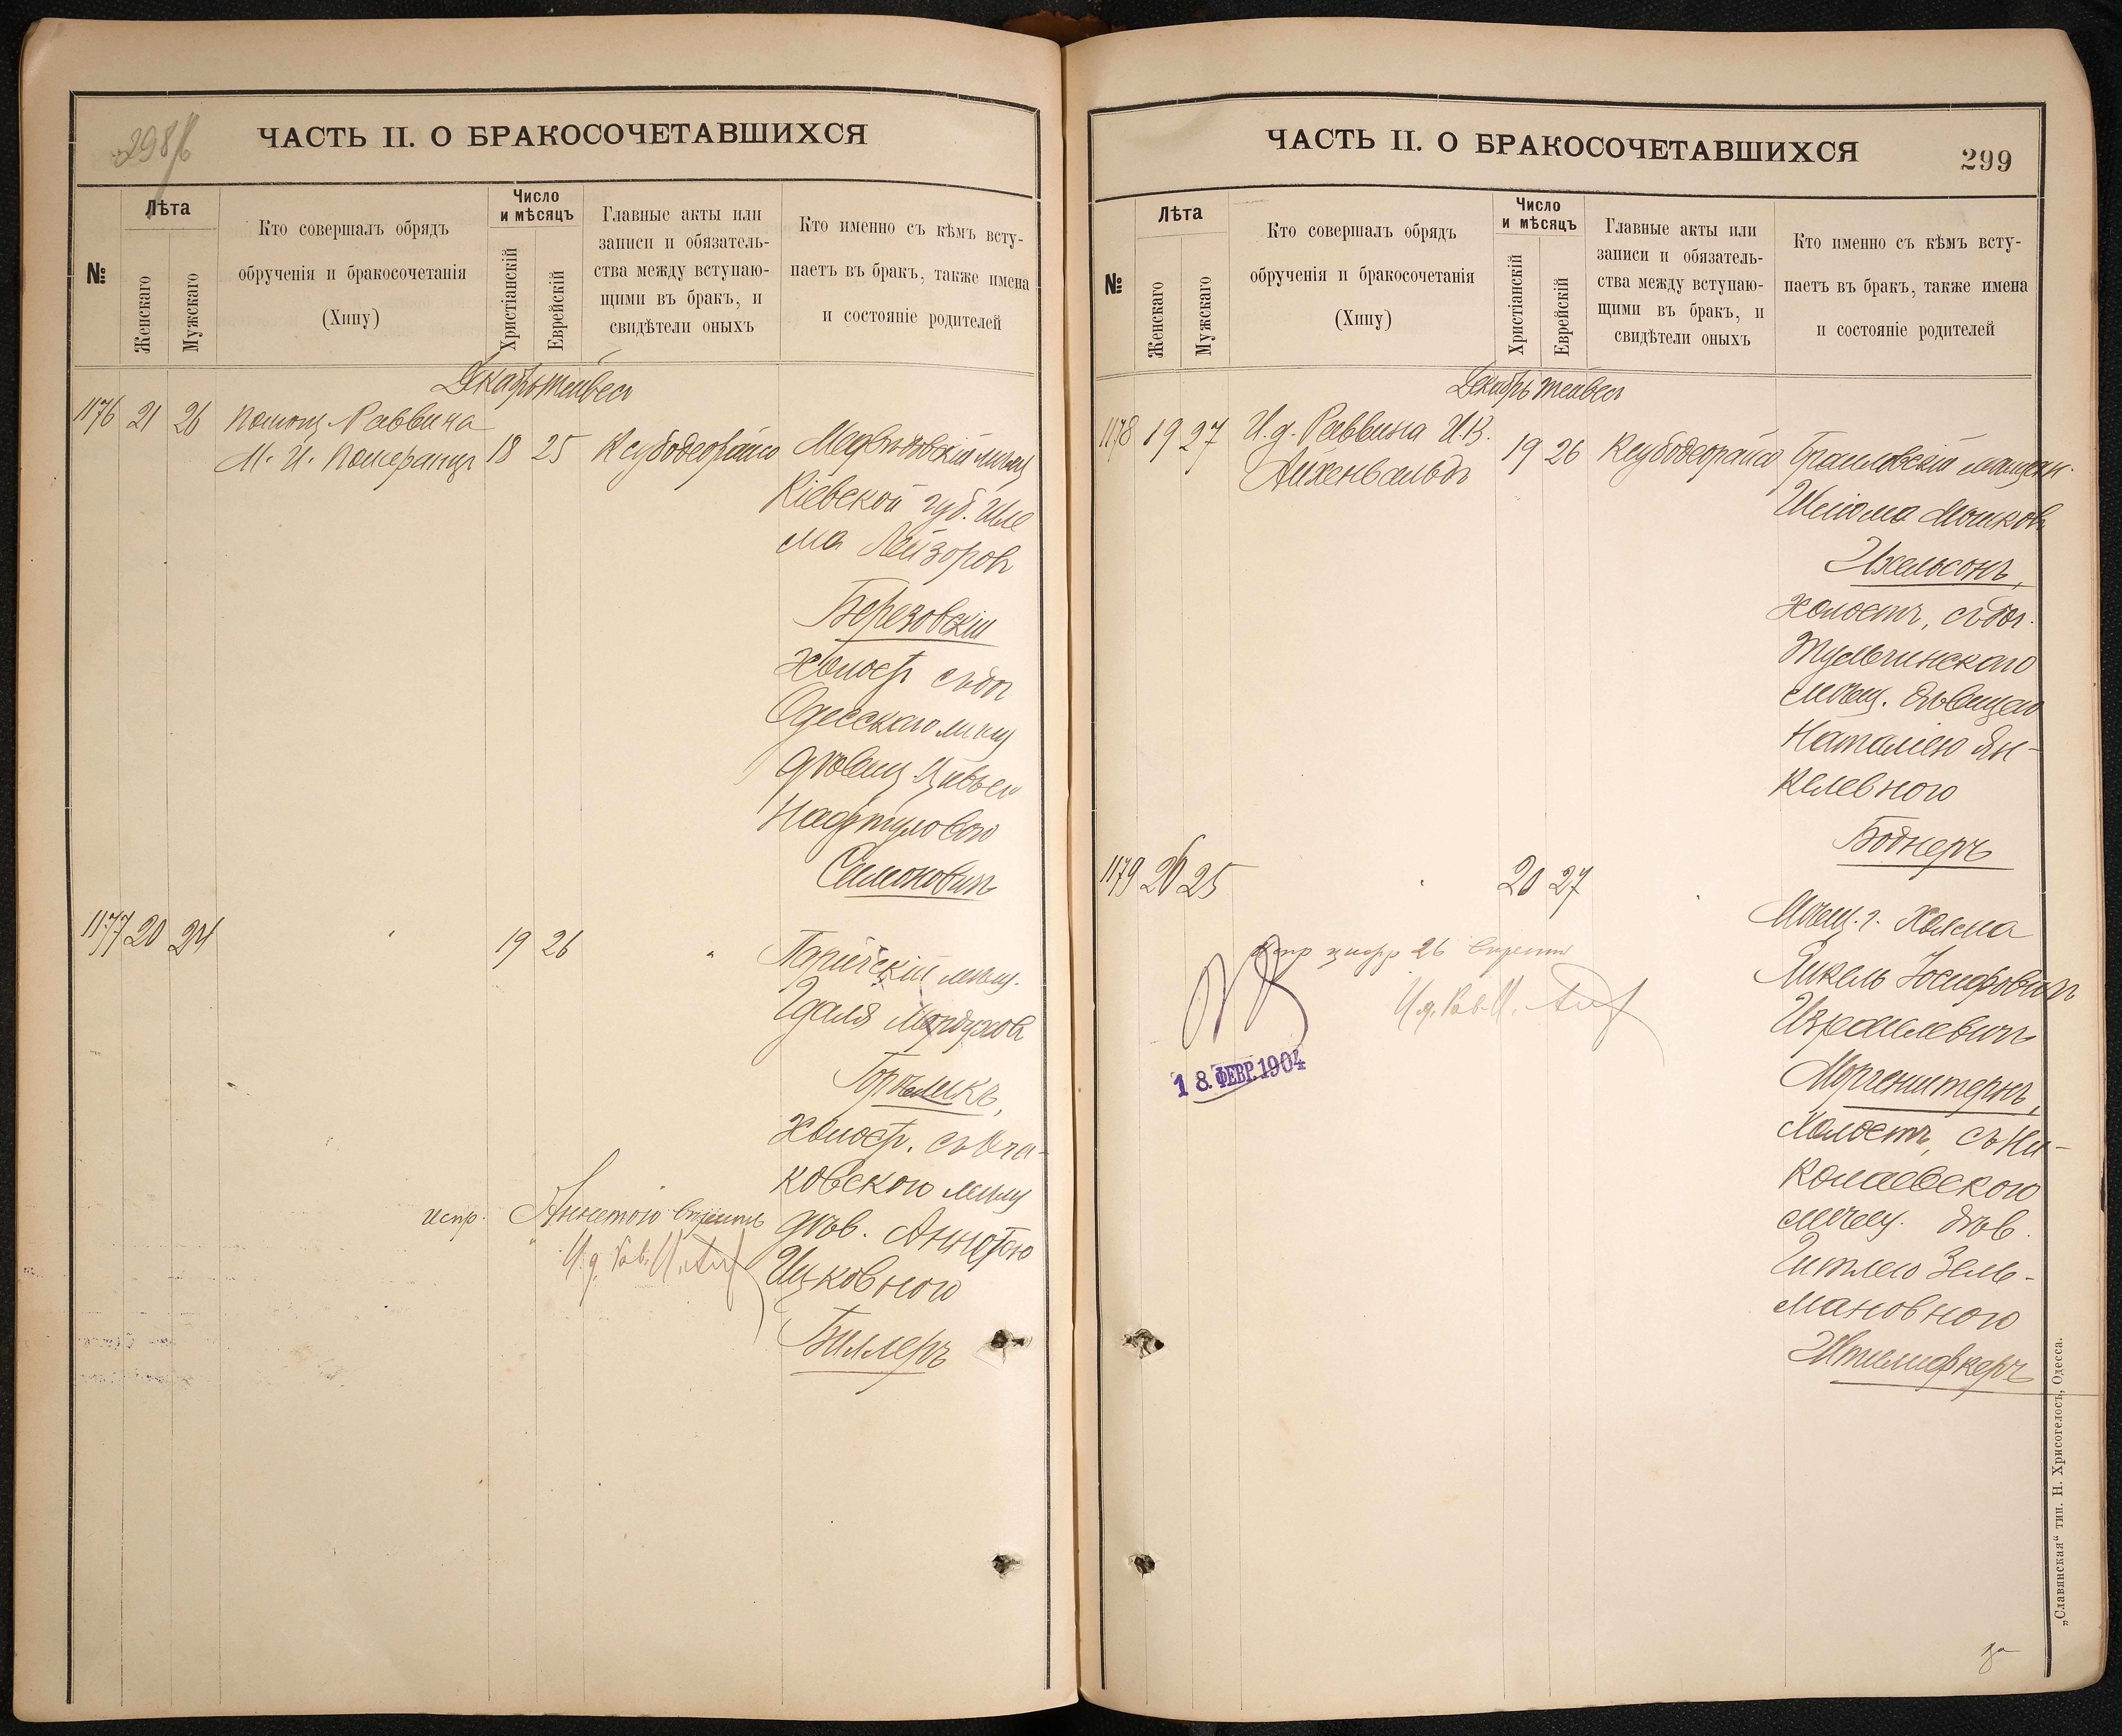 298/б
ЧАСТЬ II. О БРАКОСОЧЕТАВШИХСЯ
№
Лѣта
Женскаго
Мужскаго
Кто совершалъ обрядъ
обрученія и бракосочетанія
(Хипу)
Число
и мѣсяцъ
Христіанскій
Еврейскій
Главные акты или
записи и обязатель-
ства между вступаю-
щими въ бракъ, и
свидѣтели оныхъ
Кто именно съ кѣмъ всту-
паетъ въ бракъ, также имена
и состояніе родителей
Декабрь тейвес
1176 21 26 Помощ. Раввина
М. И. Померанцъ 18 25 Ксубодеорайсо
Медвѣдовскій мѣщ.
Кіевской губ. Шле
ма Лейзоровъ
Березовскій
холост. съ дѣв.
Одесскаго мѣщ
дѣвиц. Цивьею
Нафтуловою
Симоновичъ
1177 20 24 " 19 26 "
Горичскій мѣщ.
Гдаля Мордуховъ
Горъликъ,
холост. съ Оча-
ковскою мѣщ
дѣв. Аннетою
Ицковною
Биллеръ
испр. Аннетою вѣрить
И. д. Рав.
ЧАСТЬ II. О БРАКОСОЧЕТАВШИХСЯ
299
№
Лѣта
Женскаго
Мужскаго
Кто совершалъ обрядъ
обрученія и бракосочетанія
(Хипу)
Число
и мѣсяцъ
Христіанскій
Еврейскій
Главные акты или
записи и обязатель-
ства между вступаю-
щими въ бракъ, и
свидѣтели оныхъ
Кто именно съ кѣмъ всту-
паетъ въ бракъ, также имена
и состояніе родителей
Декабрь тейвес
1178 19 27 И. д. Раввина И. В.
Айхенвальдъ 19 26 Ксубодеорайсо
Браиловскій мѣщан.
Шлиома Мошковъ
Ихельсонъ,
холостъ, съ доч.
Тульчинскаго
мѣщ. дѣвицею
Наталіею Ян-
келевною
Боднеръ
1179 26 25 " 20 27 "
Мѣщ. г. Холма
Янкель Іосифовичъ
Израилевичъ
Моргенштернъ,
холостъ, съ Ни-
колаевскою
мѣщ. дѣв.
Гитлею Зель-
мановною
испр цифр 26 вѣрить
И. д. Рав.
18 ФЕВР. 1904
„Славянская“ тип. Н. Хрисогелосъ, Одесса.